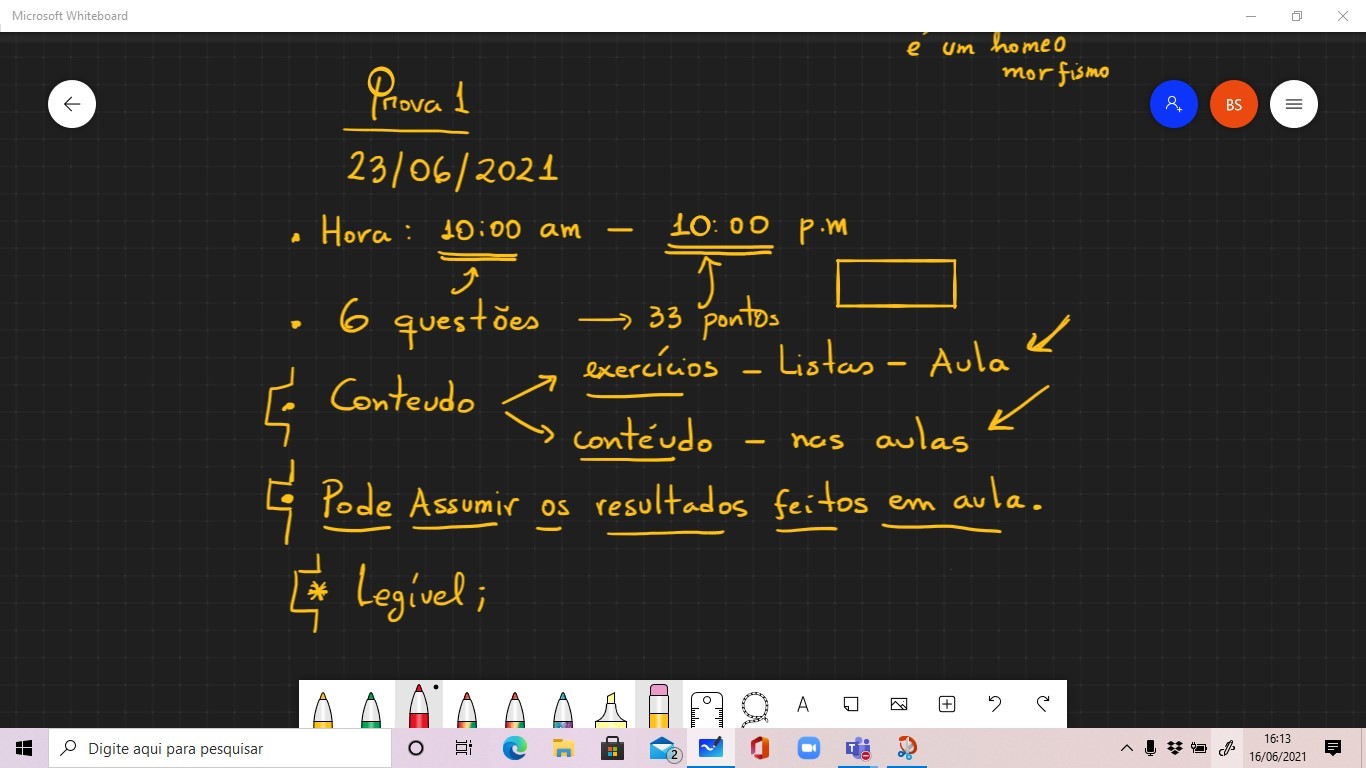 Microsoft Whiteboard
é um homeo
morfismo
Prova 1
23/06/2021
BS
• Hora: 10:00 am — 10:00 p.m
• 6 questões → 33 pontos
exercícios – Listas – Aula
• Conteudo
contéudo – nas aulas
• Pode Assumir os resultados feitos em aula.
* Legível;
A
Digite aqui para pesquisar
2
16:13
16/06/2021